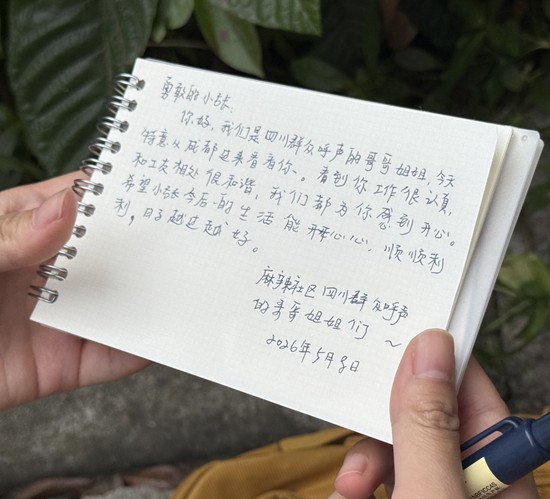 勇敢的小张：
你好，我们是四川群众呼声的哥哥姐姐，今天
特意从成都过来看看你。看到你工作很认真，
和工友相处很和谐，我们都为你感到开心。
希望小张今后的生活能开开心心，顺顺利
利，日子越过越好。
麻辣社区四川群众呼声
的哥哥姐姐们～
2026年5月8日